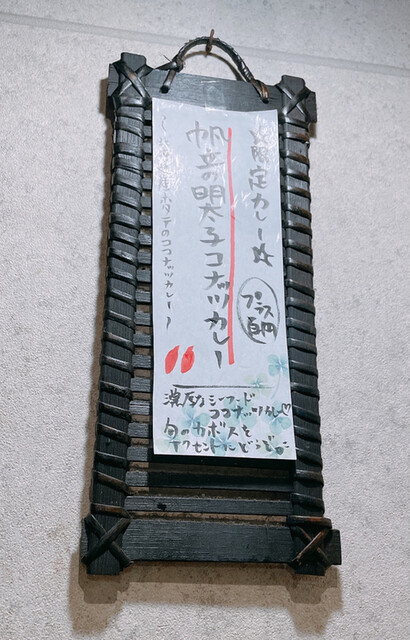 ☆限定カレー☆
プラス百円
帆立の明太子ココナッツカレー
産ホタテのココナッツカレー〜
濃厚シーフード
ココナッツカレー♡
旬のカボスを
アクセントにどうぞ